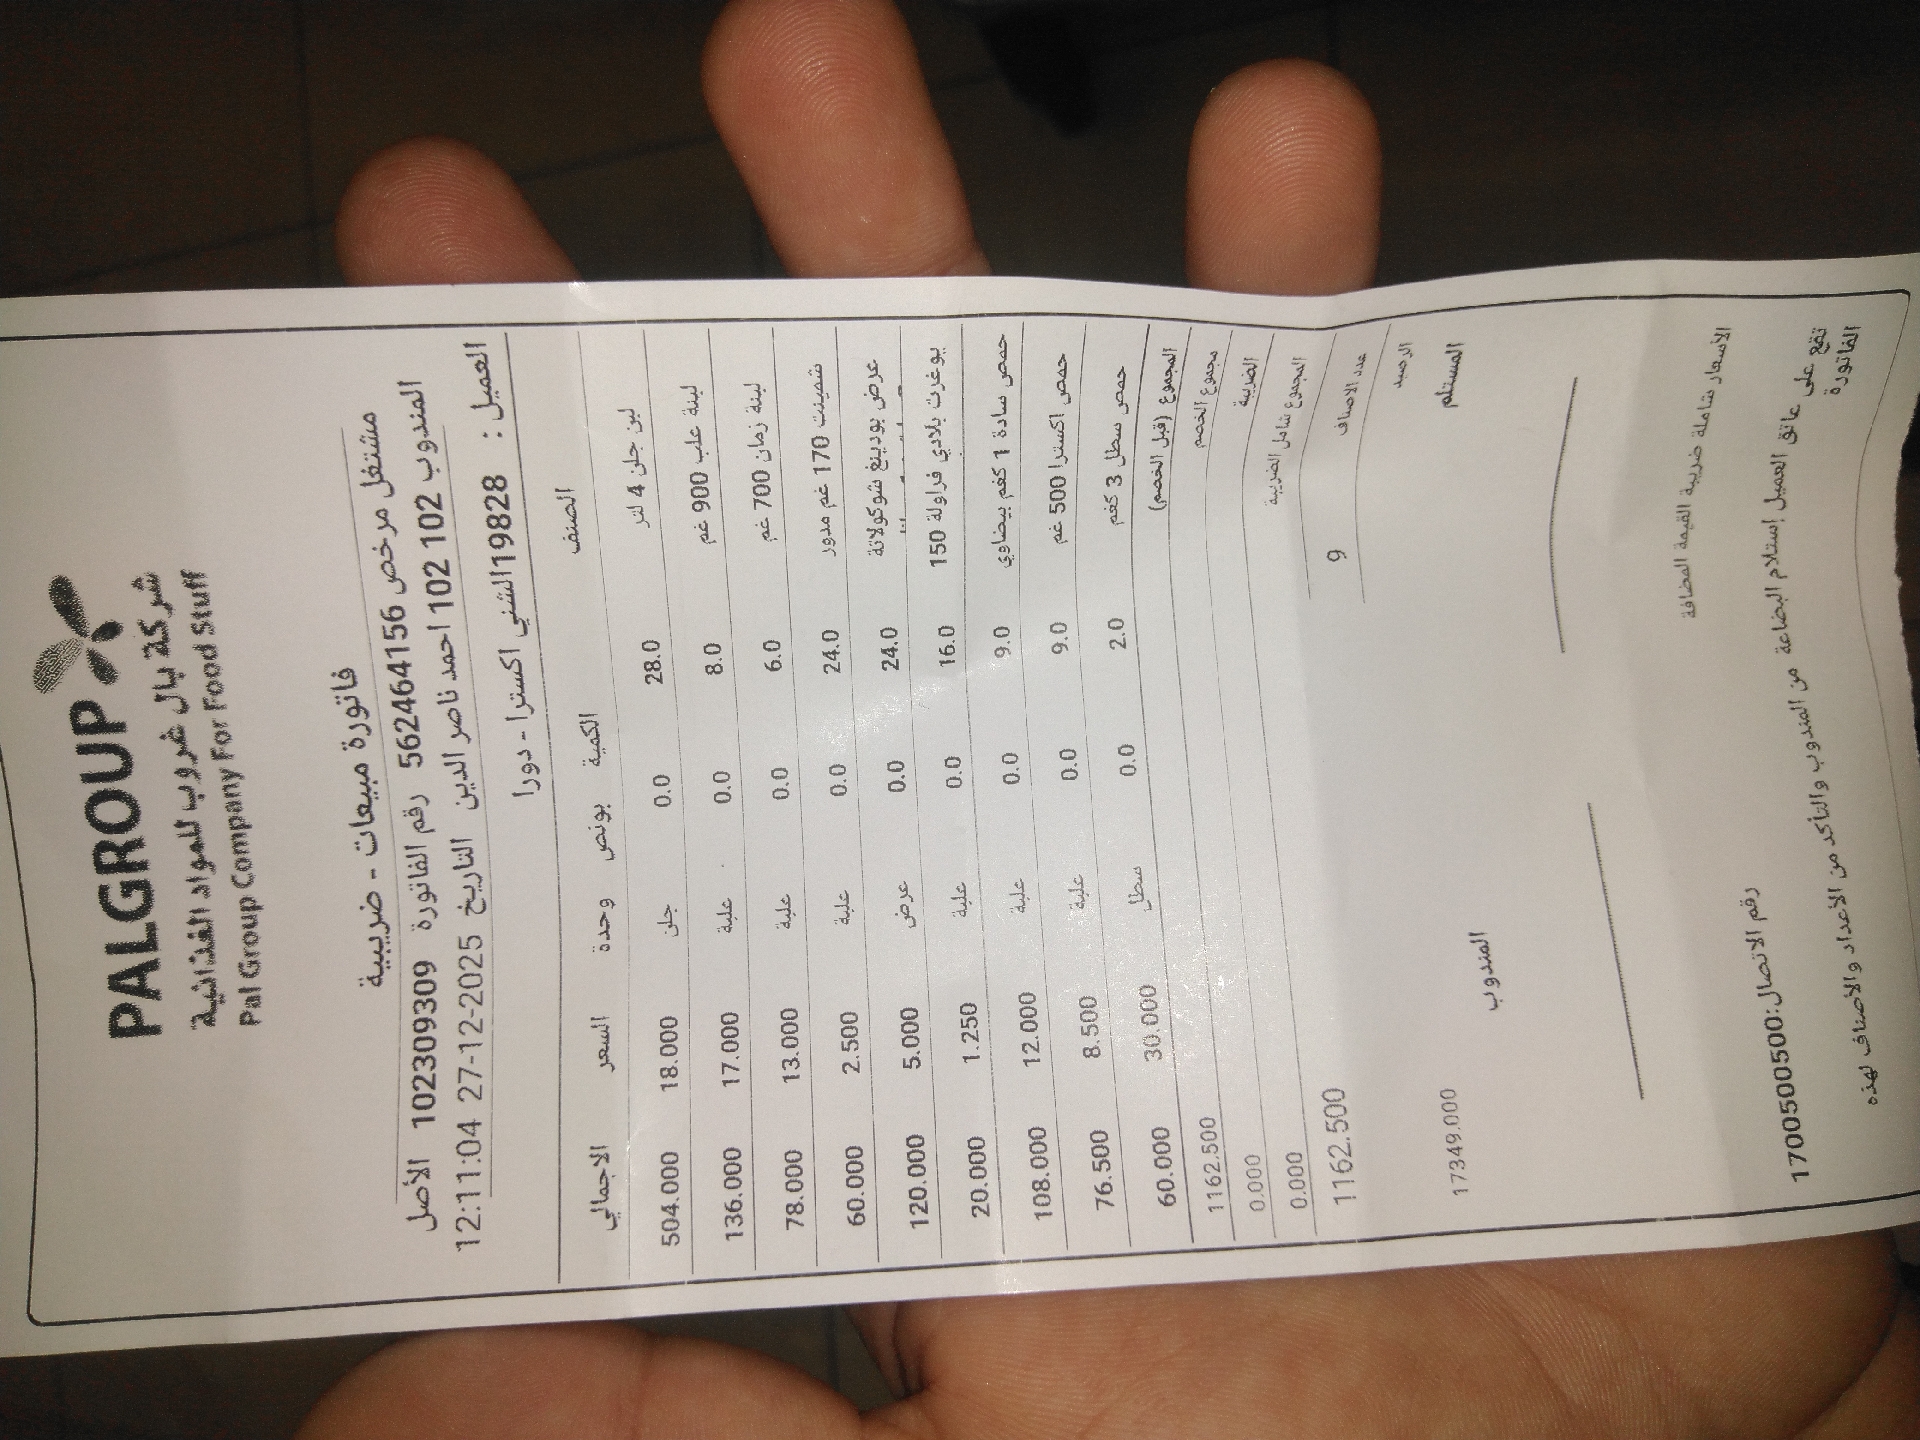 PALGROUP
شركة بال غروب للمواد الغذائية
Pal Group Company For Food Stuff
فاتورة مبيعات - ضريبية
مشتغل مرخص 562464156 رقم الفاتورة 102309309 الأصل
المندوب 102 102 احمد ناصر الدين التاريخ 2025-12-27 12:11:04
العميل : 19828الشني اكسترا - دورا
الصنف الكمية بونص وحدة السعر الاجمالي
لبن جلن 4 لتر 28.0 0.0 جلن 18.000 504.000
لبنة علب 900 غم 8.0 0.0 علبة 17.000 136.000
لبنة زمان 700 غم 6.0 0.0 علبة 13.000 78.000
شمينت 170 غم مدور 24.0 0.0 علبة 2.500 60.000
عرض بودينغ شوكولاتة 24.0 0.0 عرض 5.000 120.000
يوغرت بلادي فراولة 150 16.0 0.0 علبة 1.250 20.000
حمص سادة 1 كغم بيضاوي 9.0 0.0 علبة 12.000 108.000
حمص اكسترا 500 غم 9.0 0.0 علبة 8.500 76.500
حمص سطل 3 كغم 2.0 0.0 سطل 30.000 60.000
المجموع (قبل الخصم) 1162.500
مجموع الخصم 0.000
الضريبة 0.000
المجموع شامل الضريبة 1162.500
عدد الاصناف 9
الرصيد 17349.000
المستلم المندوب
الأسعار شاملة ضريبة القيمة المضافة
رقم الاتصال:1700500500
تقع على عاتق العميل إستلام البضاعة من المندوب والتأكد من الأعداد والأصناف لهذه
الفاتورة